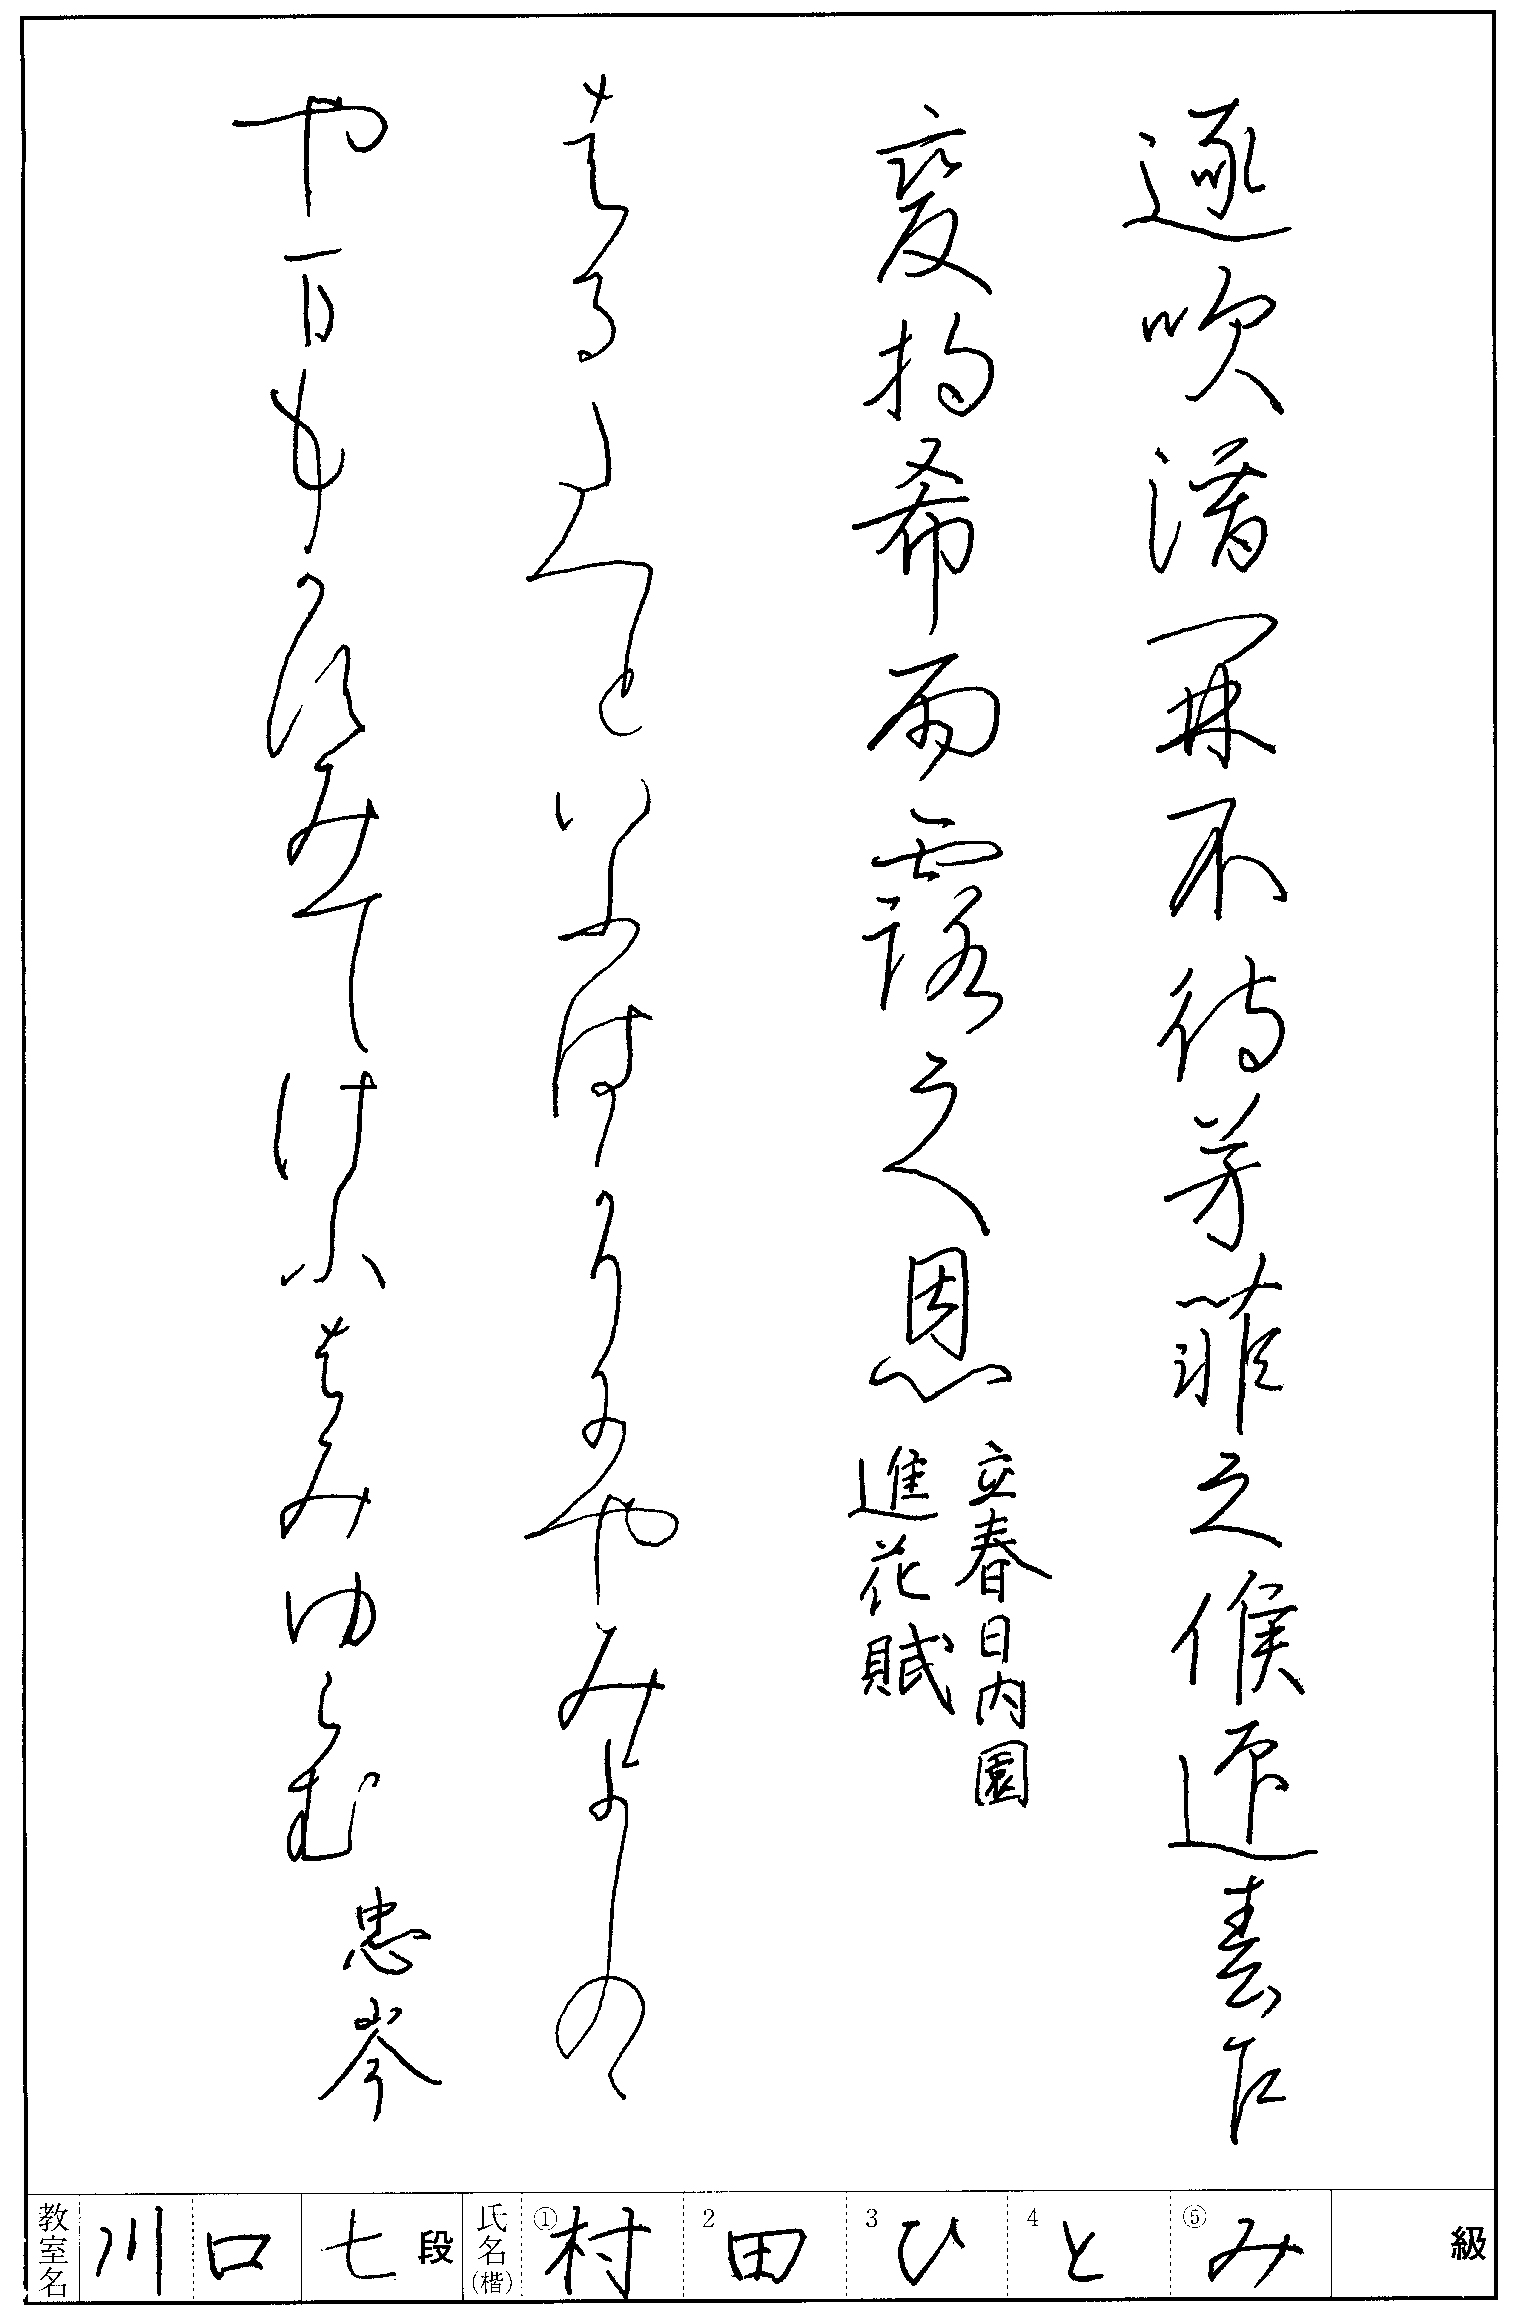 逐吹潜開不待芳菲之候迎春乍
變将希雨露之恩
立春日内園
進花賦
はるたつといふはかりにやみよしのゝ
やまもかすみてけさはみゆらむ
忠岑
教室名 川口 七段 氏名(楷) ①村 2田 3ひ 4と ⑤み 級